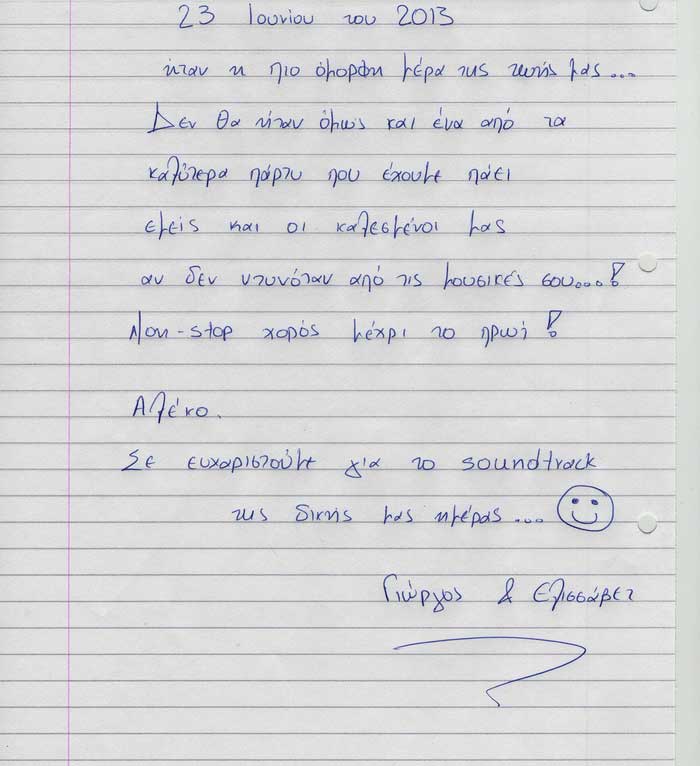 23 Ιουνίου του 2013
ήταν η πιο όμορφη μέρα της ζωής μας...
Δεν θα ήταν όμως και ένα από τα
καλύτερα πάρτυ που έχουμε πάει
εμείς και οι καλεσμένοι μας
αν δεν ντυνόταν από τις μουσικές σου...!
Non-stop χορός μέχρι το πρωί!
Αλέκο.
Σε ευχαριστούμε για το soundtrack
της δικής μας ημέρας...
Γιώργος & Ελισσάβετ